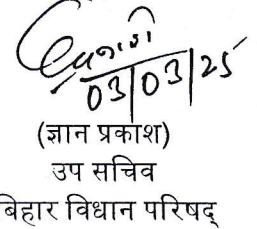 03/03/25
(ज्ञान प्रकाश)
उप सचिव
बिहार विधान परिषद्